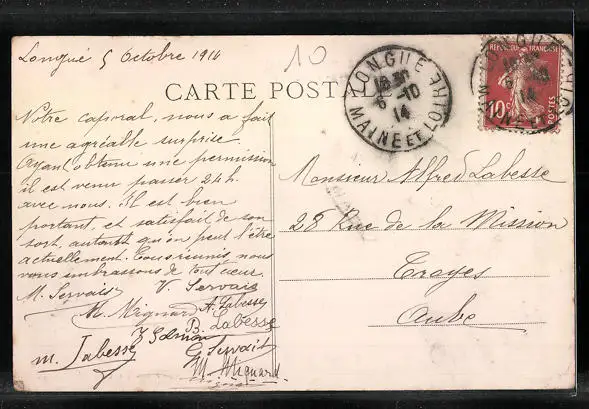 Longué 5 Octobre 1914
10
CARTE POSTALE
LONGUÉ
18 30
6 -10
14
MAINE ET LOIRE
RÉPUBLIQUE FRANÇAISE
10c
POSTES
Notre caporal, nous a fait
une agréable surprise
Ayant obtenu une permission
il est venu passer 24h.
avec nous. Il est bien
portant, et satisfait de son
sort, autant qu'on peut l'être
actuellement. Tous réunis, nous
vous embrassons de tout cœur.
M. Servais V. Servais
M. Mignard A. Labesse
B. Labesse
G. Servais
M. Labesse
M. Mignard.
Monsieur Alfred Labesse
28 Rue de la Mission
Troyes
Aube